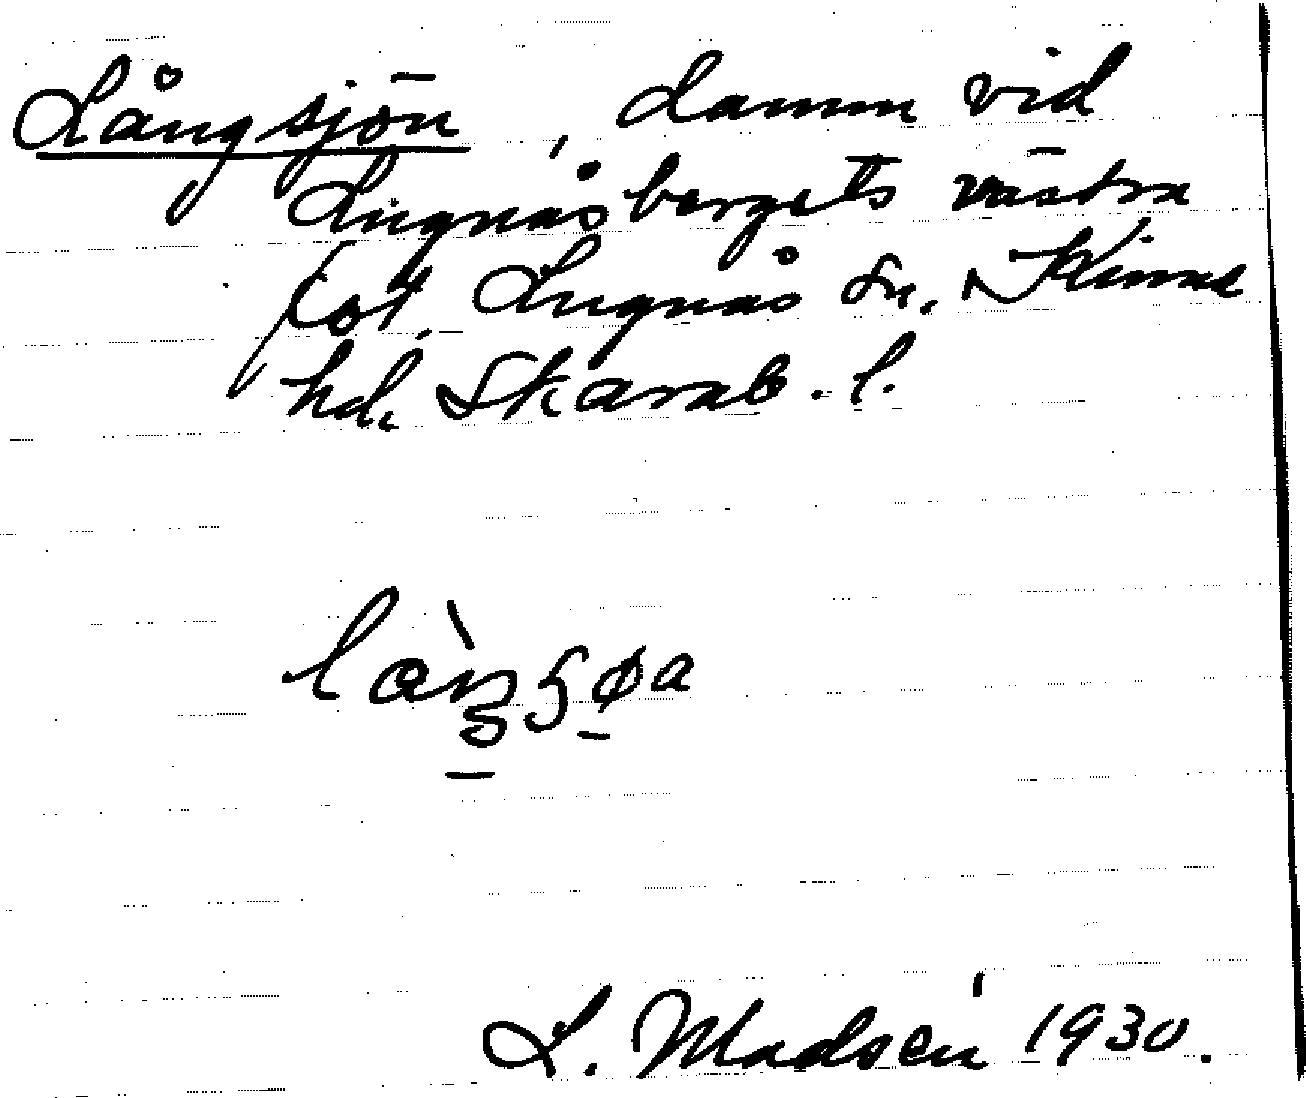 Långsjön, damm vid
Lugnåsbergets västra
fot. Lugnås sn. Kinne
hd. Skarab. l.
L. Madsén 1930.